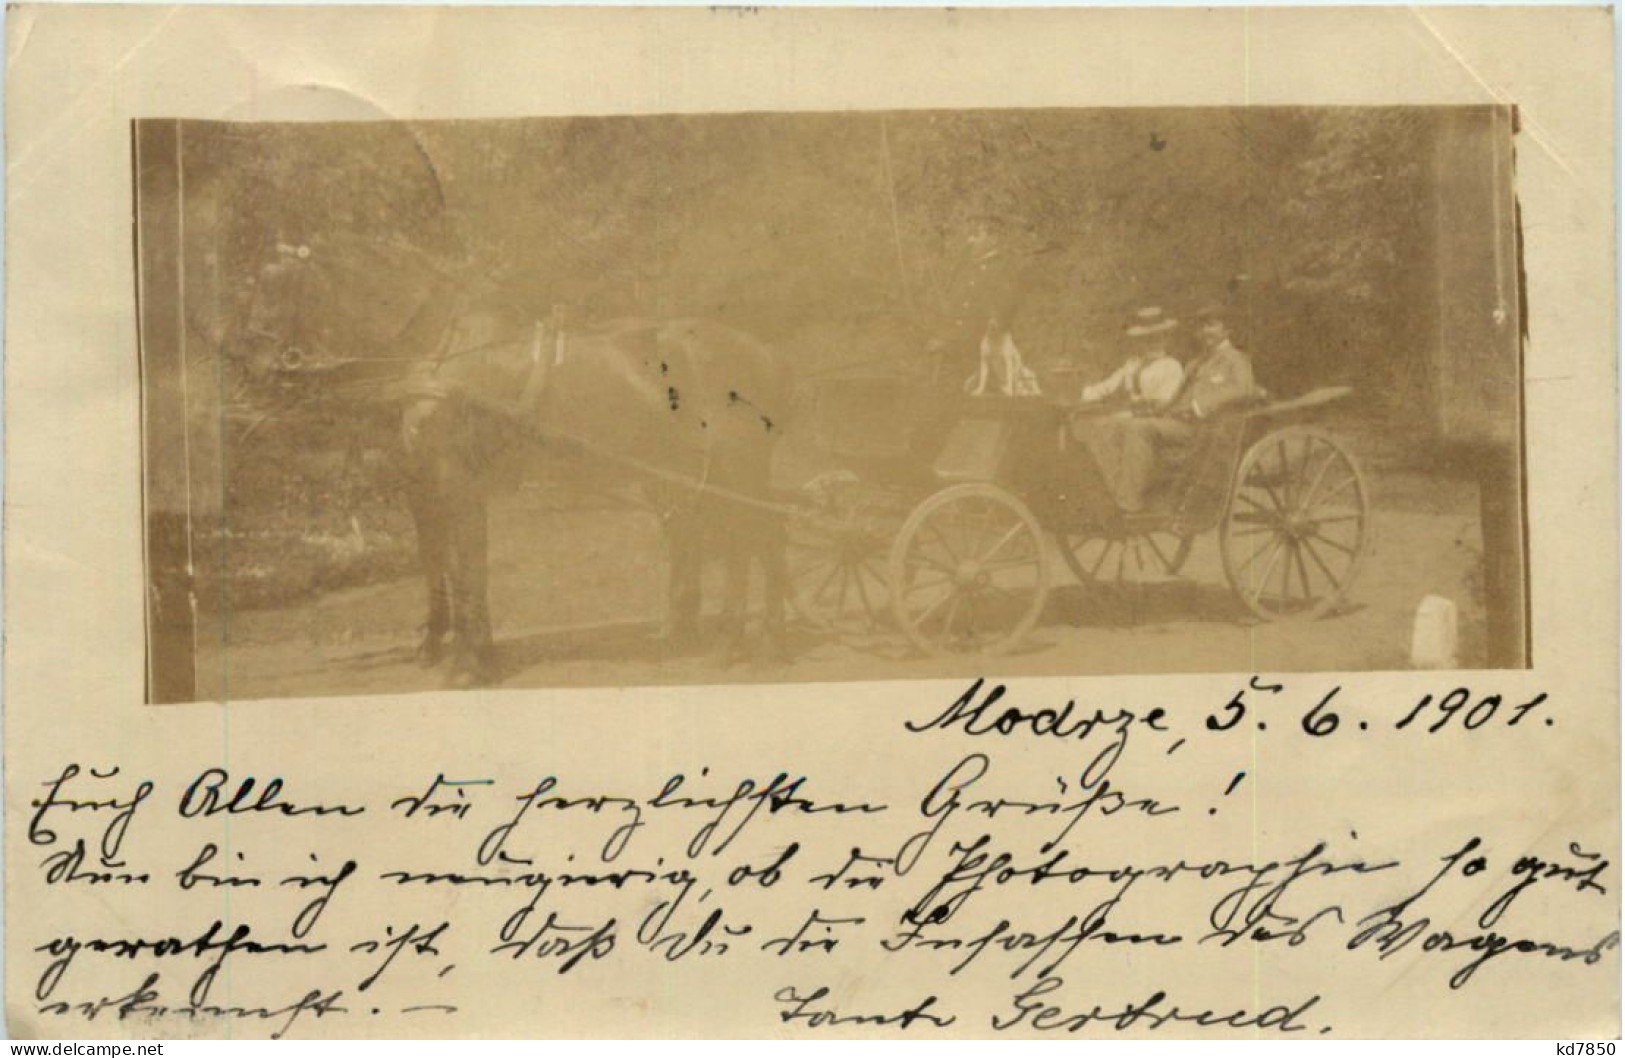 Modrze, 5. 6. 1901.
Euch Allen die herzlichsten Grüße!
Nun bin ich neugierig, ob die Photographie so gut
gerathen ist, daß Du die Insassen des Wagens
erkennst. —
Tante Gertrud.
kd7850